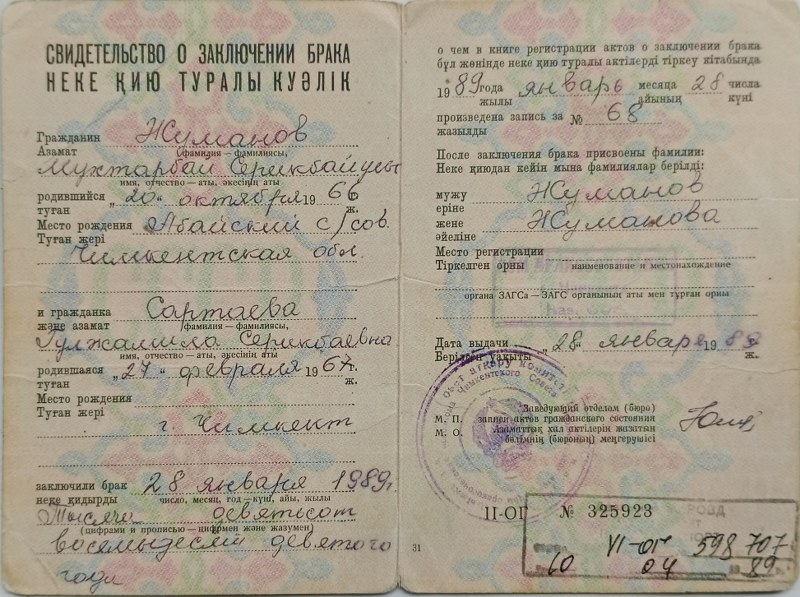 СВИДЕТЕЛЬСТВО О ЗАКЛЮЧЕНИИ БРАКА
НЕКЕ ҚИЮ ТУРАЛЫ КУӘЛІК
Гражданин Жуманов
Азамат (фамилия — фамилиясы,
Мухтарбай Серикбайулы
имя, отчество — аты, әкесінің аты
родившийся „20“ октября 1966
туған ж.
Место рождения Абайский с/сов.
Туған жері
Чимкентская обл.
и гражданка Сартаева
және азамат (фамилия — фамилиясы,
Гулжамила Серикбаевна
имя, отчество — аты, әкесінің аты
родившаяся „27“ февраля 1967 г.
туған ж.
Место рождения
Туған жері
г. Чимкент
заключили брак 28 января 1989 г.
неке қидырды число, месяц, год — күні, айы, жылы
Тысяча девятьсот
(цифрами и прописью — цифрмен және жазумен)
восемьдесят девятого
года
о чем в книге регистрации актов о заключении брака
бұл жөнінде неке қию туралы актілерді тіркеу кітабында
1989 года январь месяца 28 числа
жылы айының күні
произведена запись за № 68
жазылды
После заключения брака присвоены фамилии:
Неке қиюдан кейін мына фамилиялар берілді:
мужу Жуманов
еріне
жене Жуманова
әйеліне
Место регистрации
Тіркелген орны наименование и местонахождение
органа ЗАГСа — ЗАГС органының аты мен тұрған орны
Дата выдачи „28“ января 1989 г.
Берілген уақыты ж.
Заведующий отделом (бюро)
М. П. записи актов гражданского состояния
М. О. Азаматтық хал актілерін жазатын
бөлімнің (бюроның) меңгерушісі
II-ОГ № 325923
РОВД
VI-ОГ 598707
60 04 89
31